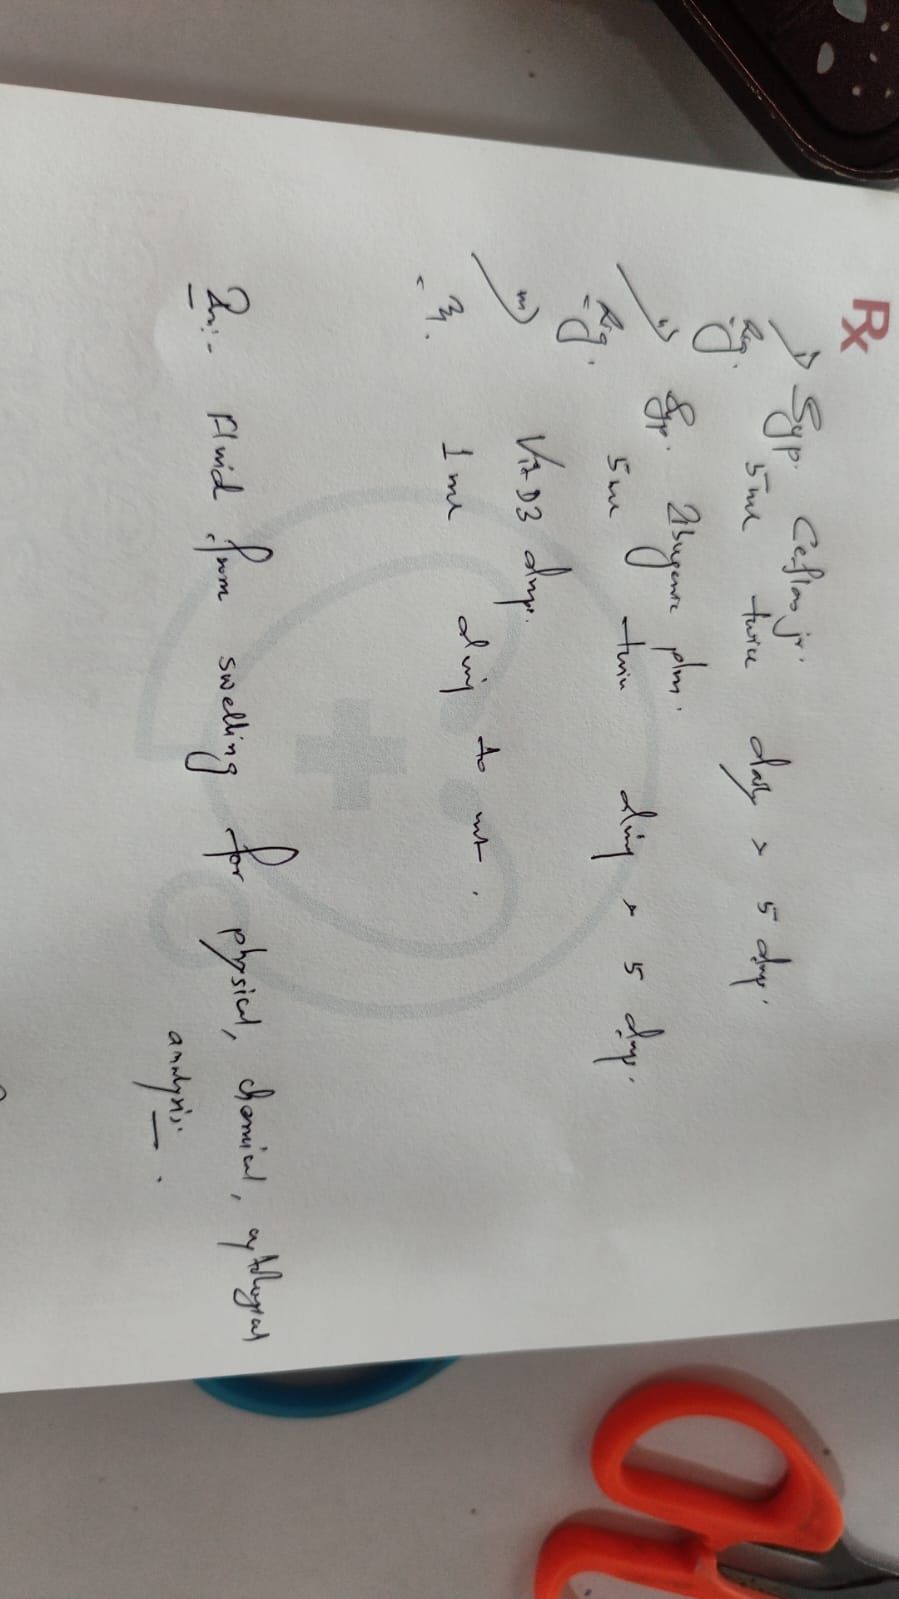 Rx
i) Syp. Ceflas jr.
5 ml twice daily x 5 days.
ii) Syp. Ibugesic plus.
5 ml twice daily x 5 days.
iii) Vit D3 drops.
1 ml daily to
Fluid from swelling for physical, chemical, cytological
analysis.